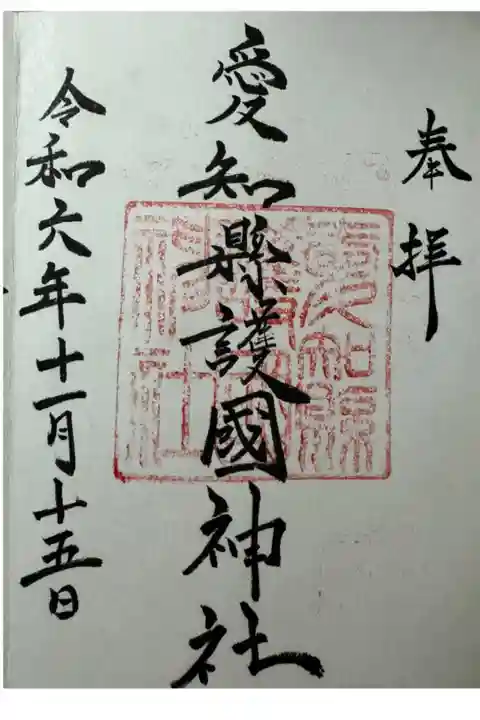 奉拝
愛知縣護國神社
令和六年十一月十五日
愛知縣
護國神
社印